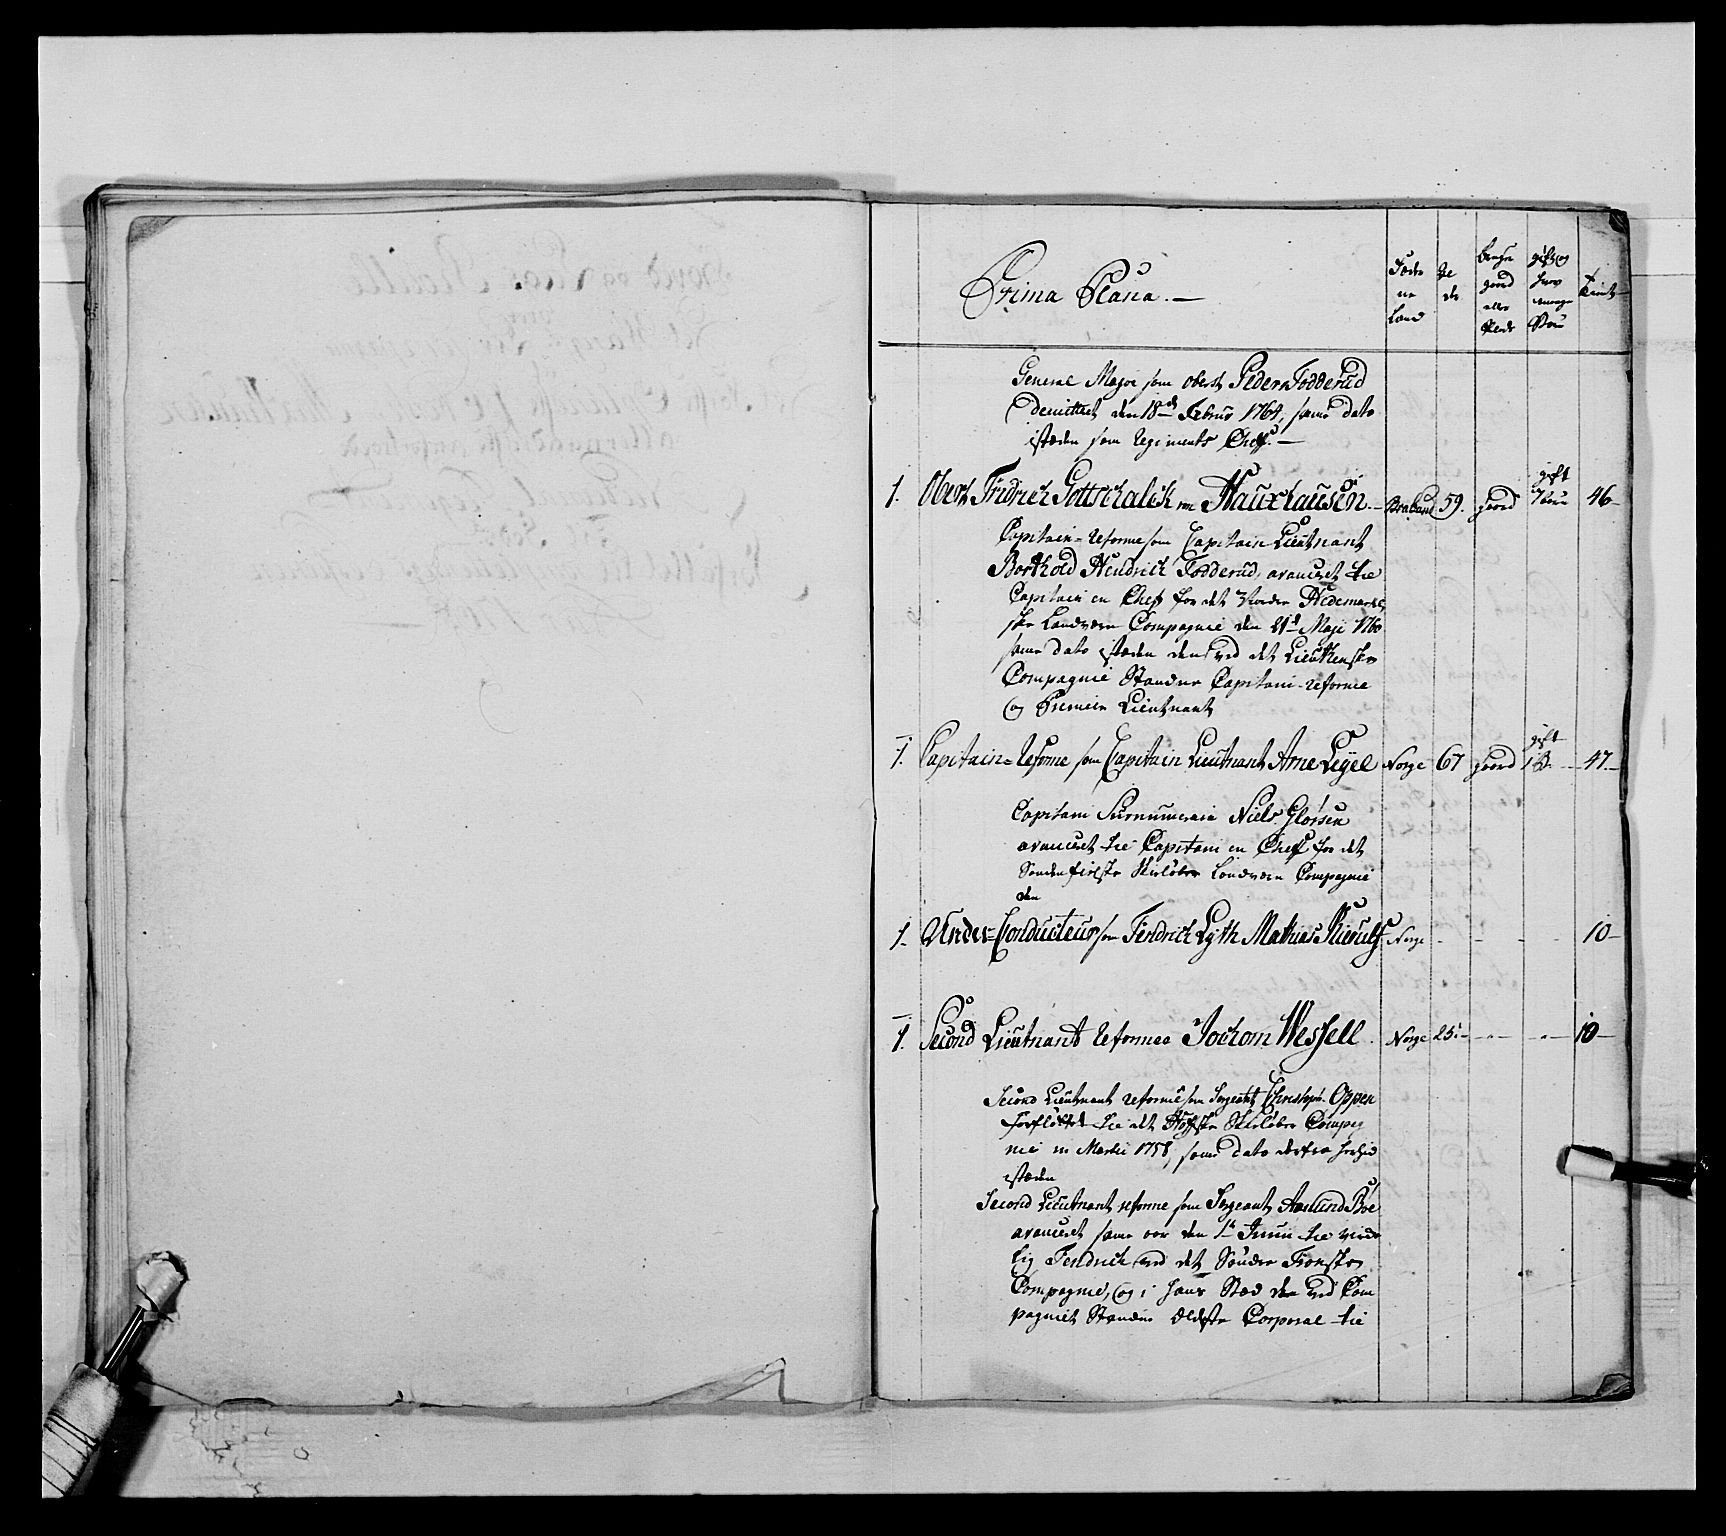 Prima Plana.
Føde
ne
Land
Al
der
gaard
eller
gift og
hvor
mange
Børn
Tient
General Major som oberst Peder Fodderud
demittert den 18de Februr 1764, samme dato
istæden som Regiments Chef.
1. Oberst Fridrich Gottschalck von Hauxhausen. Braband 59. gaard gift 7 børn 46
Capitain-reforme som Capitain Lieutnant
Barthold Hendrich Fodderud, avanceret til
Capitain en Chef for det Nordre Hedemark
ske Landværn Compagnie den 21de Maji 1760
samme dato istæden den ved det Lieuthenske
Compagnie Staaende Capitain-reforme
og Premier Lieutnant
1. Capitain-Reforme som Capitain Lieutnant Arne Legel Norge 67 gaard gift 1 B. 47.
Capitain Surnumerair Niels Glørsen
avanceret til Capitain en Chef for det
Søndenfielske Skieløber Landværn Compagnie
den
1. Under-Conducteur som Fendrich Lyth Mathias Kierulf Norge - - - 10
1. Second Lieutnant reformee Jochom Wessell Norge 25 - - 10
Second Lieutnant reforme som Sergeant Christoph. Oppen
forfløttet til det Hoffske Skieløber Compag
nie in Martii 1758, samme dato derfra herhid
istæden
Second Lieutnant reforme som Sergeant Aamund Boe
avanceret samme aar den 1te Junii til virke
lig Fendrich ved det Søndre Tronske
Compagnie, og i hans Stæd den ved Com
pagniet Staaende Ældste Corporal til